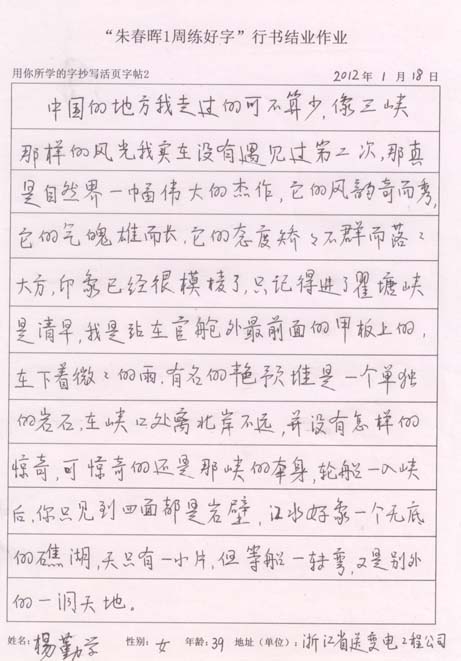 “朱春晖1周练好字”行书结业作业
用你所学的字抄写活页字帖2 2012年1月18日
中国的地方我走过的可不算少,像三峡
那样的风光我实在没有遇见过第二次,那真
是自然界一幅伟大的杰作,它的风韵奇而秀,
它的气魄雄而长,它的态度矫々不群而落々
大方,印象已经很模棱了,只记得进了瞿塘峡
是清早,我是站在官舱外最前面的甲板上的,
在下着微々的雨.有名的艳预堆是一个单独
的岩石,在峡口处离北岸不远,并没有怎样的
惊奇,可惊奇的还是那峡的本身,轮船一入峡
后,你只见到四面都是岩壁,江水好象一个无底
的礁湖,天只有一小片,但等船一转弯,又是别外
的一洞天地。
姓名:杨勤学 性别:女 年龄:39 地址(单位):浙江省送变电工程公司